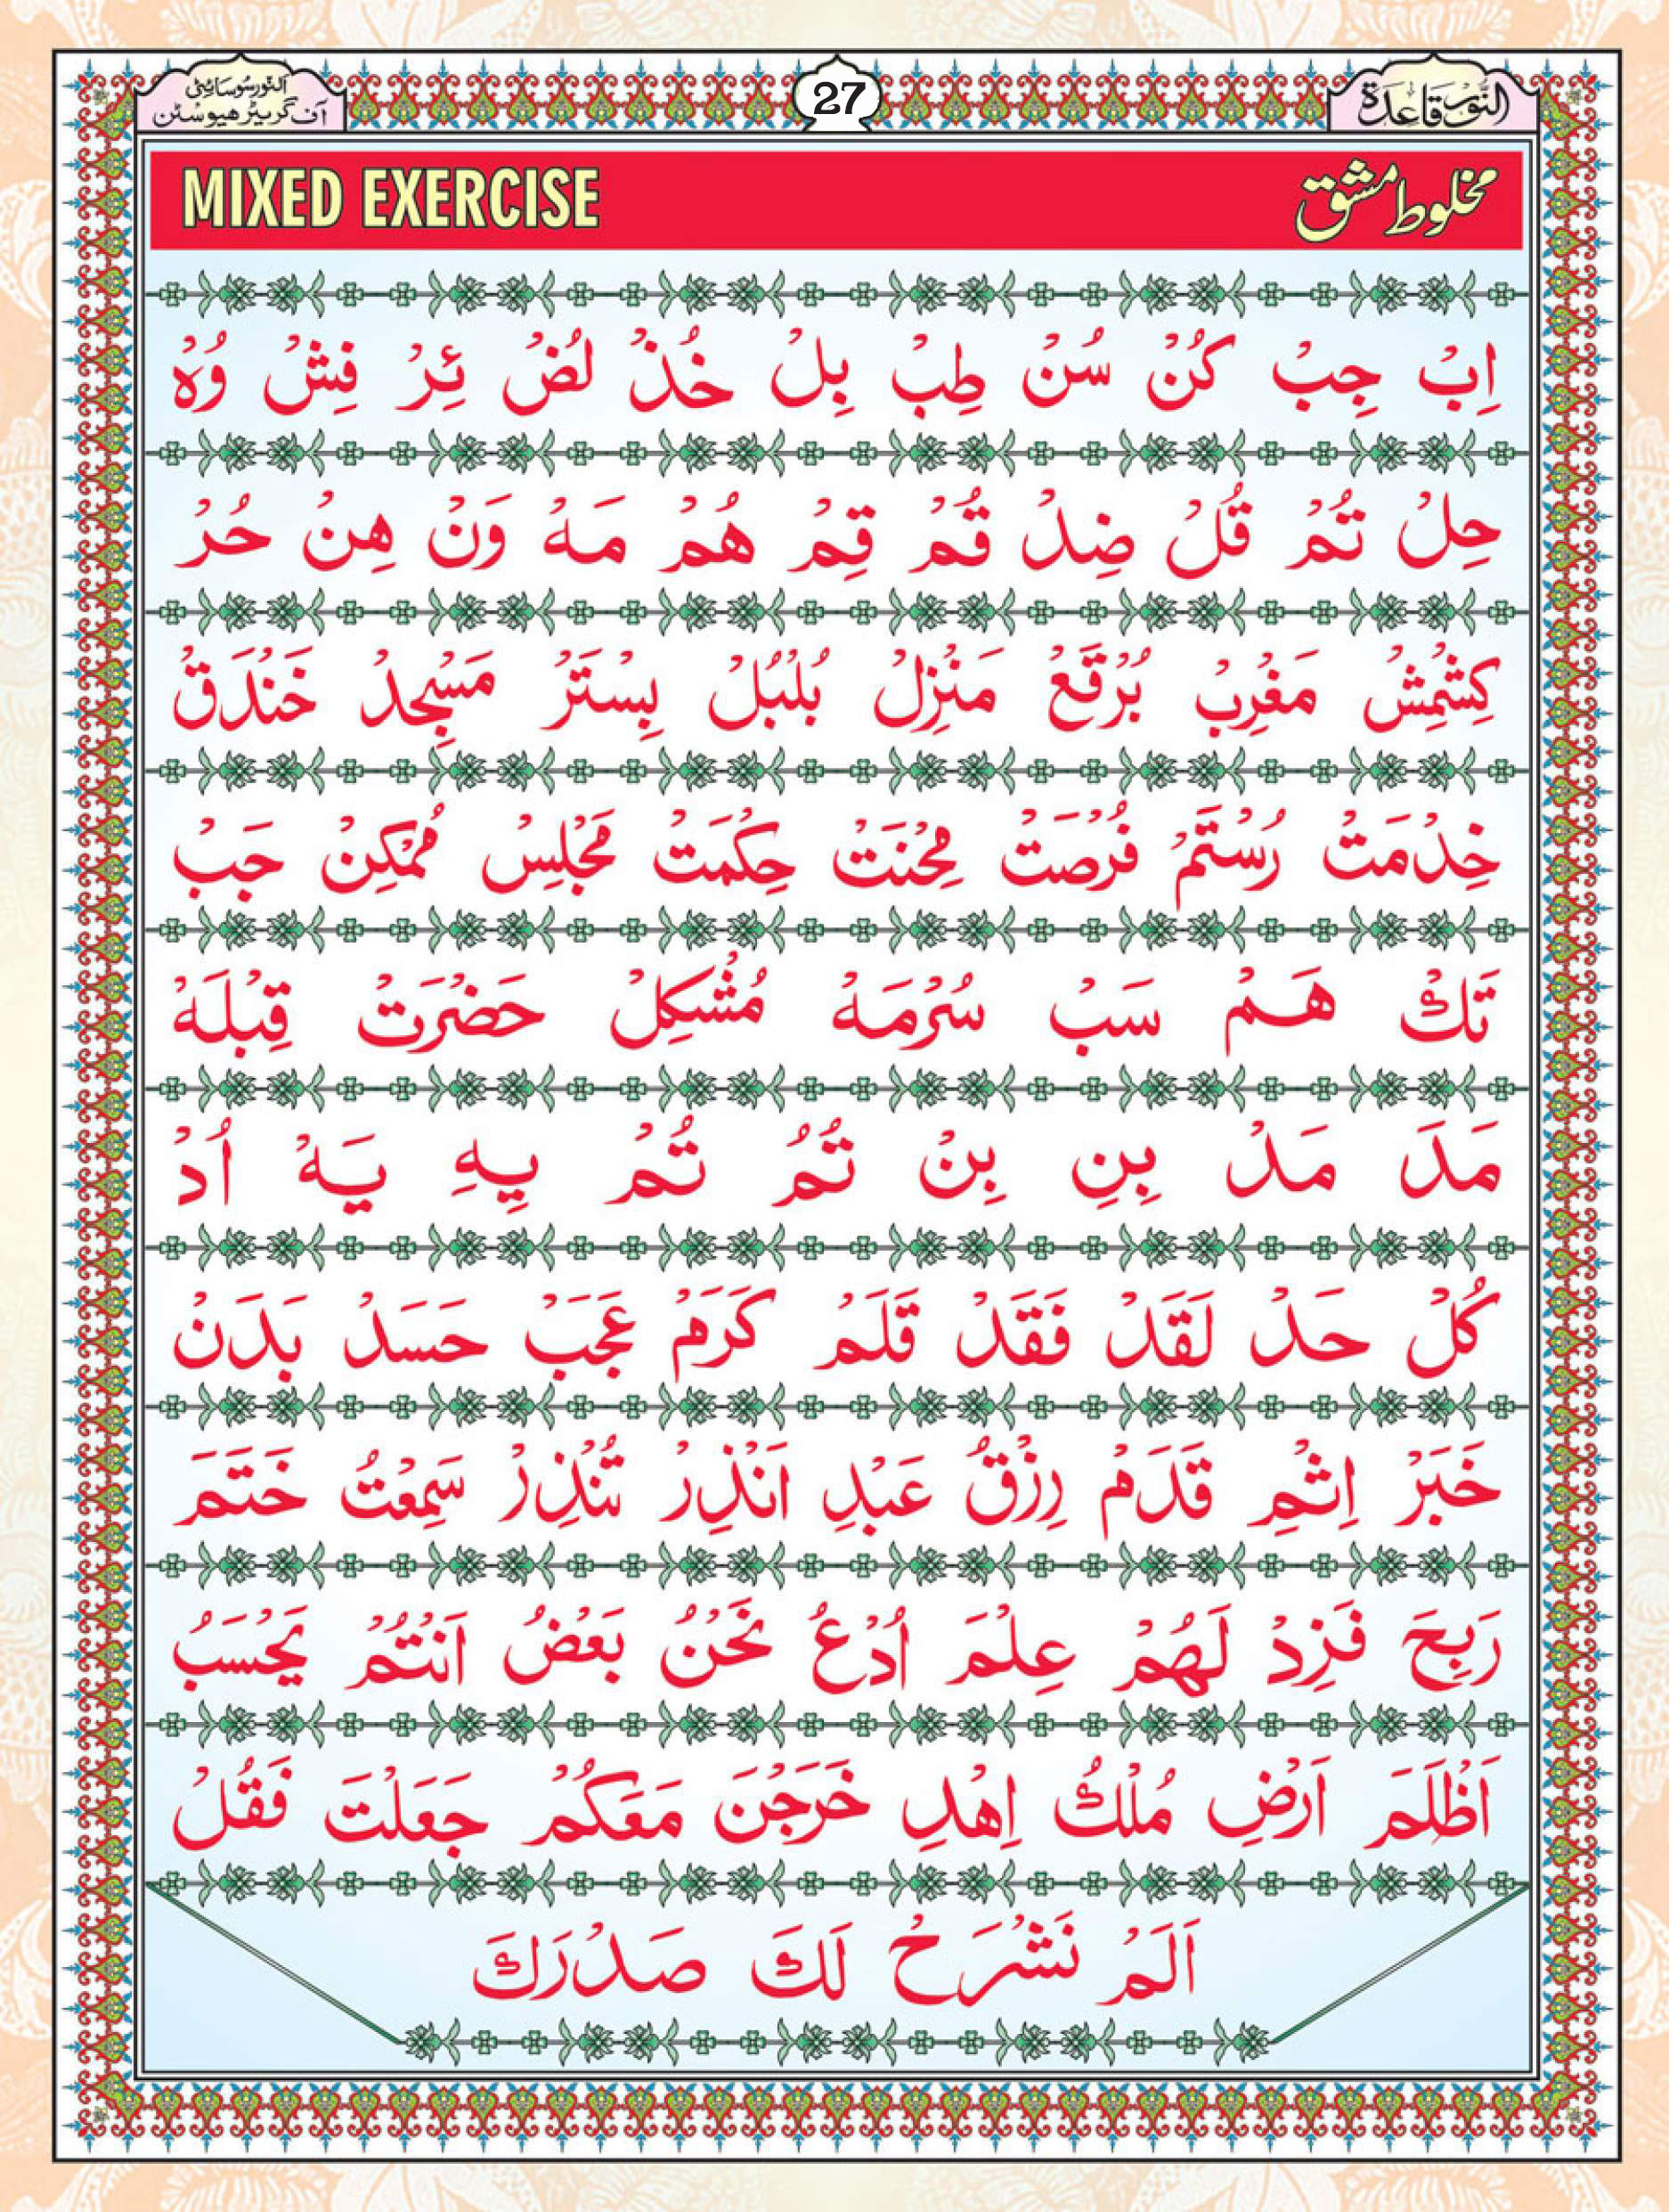 النُّور قَاعِدَة
27
اَلنُّور سُوسَائِٹی
آف گریٹر ھیوسٹن
MIXED EXERCISE
مخلوط مشق
اِبْ جِبْ كُنْ سُنْ طِبْ بِلْ خُذْ لُضْ ئِرْ فِشْ وُهْ
حِلْ تُمْ قُلْ ضِدْ قُمْ قِمْ هُمْ مَهْ وَنْ هِنْ حُرْ
كِشْمِشْ مَغْرِبْ بُرْقَعْ مَنْزِلْ بُلْبُلْ بِسْتَرْ مَسْجِدْ خَنْدَقْ
خِدْمَتْ رُسْتَمْ فُرْصَتْ مِحْنَتْ حِكْمَتْ مَجْلِسْ مُمْكِنْ جَبْ
تَكْ هَمْ سَبْ سُرْمَهْ مُشْكِلْ حَضْرَتْ قِبْلَهْ
مَدَ مَدْ بِنِ بِنْ تُمُ تُمْ يِهِ يَهْ اُدْ
كُلْ حَدْ لَقَدْ فَقَدْ قَلَمْ كَرَمْ عَجَبْ حَسَدْ بَدَنْ
خَبَرْ اِثْمِ قَدَمْ رِزْقُ عَبْدِ اَنْذِرْ تُنْذِرْ سَمِعْتُ خَتَمَ
رَبِحَ فَزِدْ لَهُمْ عِلْمَ اُدْعُ نَحْنُ بَعْضُ اَنْتُمْ يَحْسَبُ
اَظْلَمَ اَرْضِ مُلْكُ اِهْدِ خَرَجْنَ مَعَكُمْ جَعَلْتَ فَقُلْ
اَلَمْ نَشْرَحْ لَكَ صَدْرَكَ